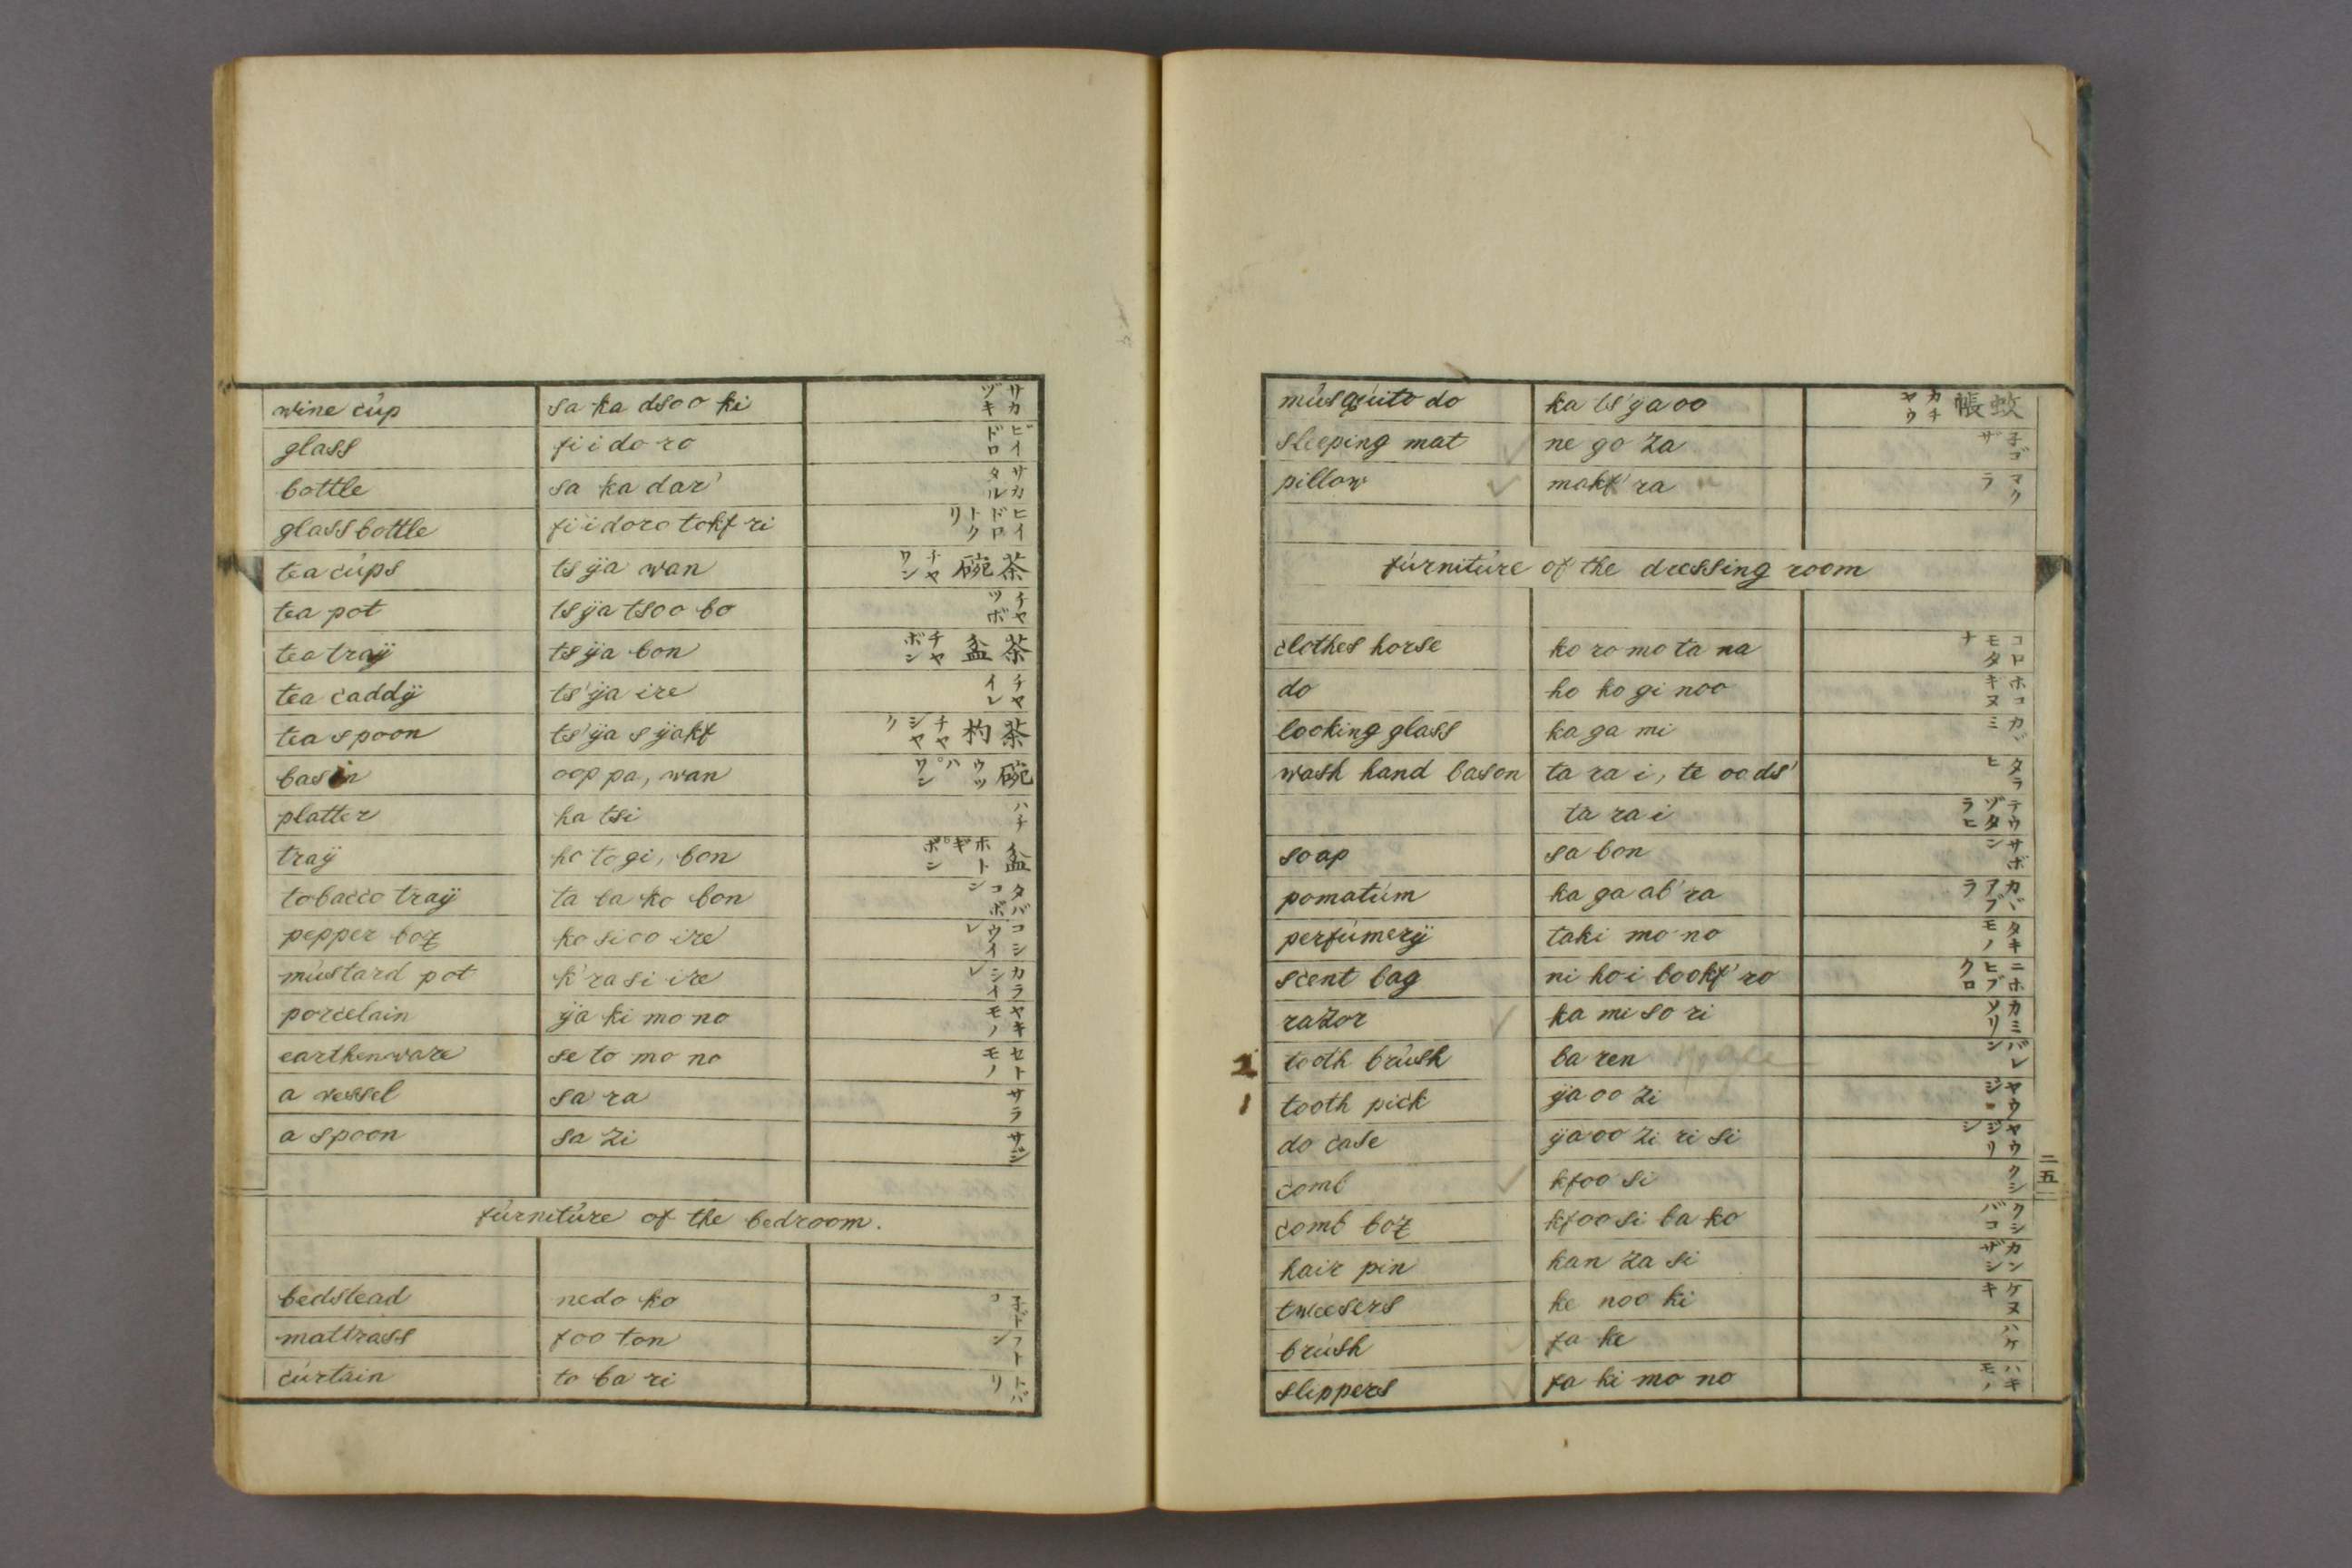 wine cup sa ka dsoo ki サカヅキ
glass fi i do ro ビイドロ
bottle sa ka dar' サカタル
glass bottle fi i doro tokf ri ヒイドロトクリ
tea cups ts ÿa wan 茶碗 チヤワン
tea pot ts ÿa tsoo bo チヤツボ
tea traÿ ts ÿa bon 茶盆 チヤボン
tea caddÿ ts'ÿa ire チヤイレ
tea spoon ts'ÿa s ÿakf 茶杓 チヤシヤク
basin oop pa, wan 碗 ウツパワン
platter ha tsi ハチ
traÿ ho to gi, bon 盆 ホトギボン
tobacco traÿ ta ba ko bon タバコボン
pepper box ko sioo ire コシウイレ
mustard pot k'ra si ire カラシイレ
porcelain ÿa ki mo no ヤキモノ
earthenware se to mo no セトモノ
a vessel sa ra サラ
a spoon sa zi サジ
furniture of the bedroom.
bedstead nedo ko 子ドコ
mattrass foo ton フトン
curtain to ba ri トバリ
musquito do ka ts'ÿa oo 蚊帳 カチヤウ
sleeping mat ne go za 子ゴザ
pillow makf'ra マクラ
furniture of the dressing room
clothes horse ko ro mo ta na コロモタナ
do ho ko gi noo ホコキヌ
looking glass ka ga mi カヾミ
wash hand bason ta ra i, te oo ds' タラヒ
ta ra i テウヅタラヒ
soap sa bon サボン
pomatum ka ga ab'ra カヾアブラ
perfumerÿ taki mo no タキモノ
scent bag ni ho i bookf'ro ニホヒブクロ
razor ka mi so ri カミソリ
2 tooth brush ba ren バレン
1 tooth pick ÿa oo zi ヤウジ
do case ÿa oo zi ri si ヤウジリシ
comb kfoo si クシ
二五
comb box kfoo si ba ko クシバコ
hair pin kan za si カンザシ
tweesers ke noo ki ケヌキ
brush fa ke ハケ
slippers fa ki mo no ハキモノ